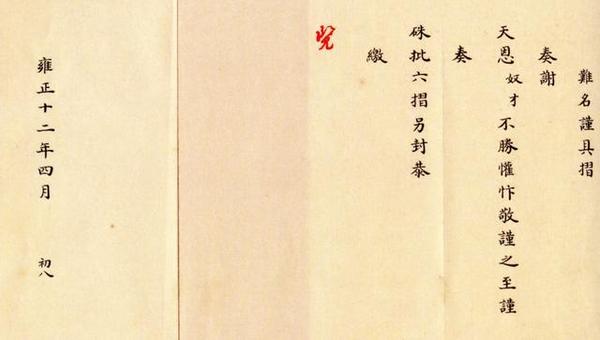 難名謹具摺
奏謝
天恩奴才不勝懽忭敬謹之至謹
奏
硃批六摺另封恭
繳
覽
雍正十二年四月 初八